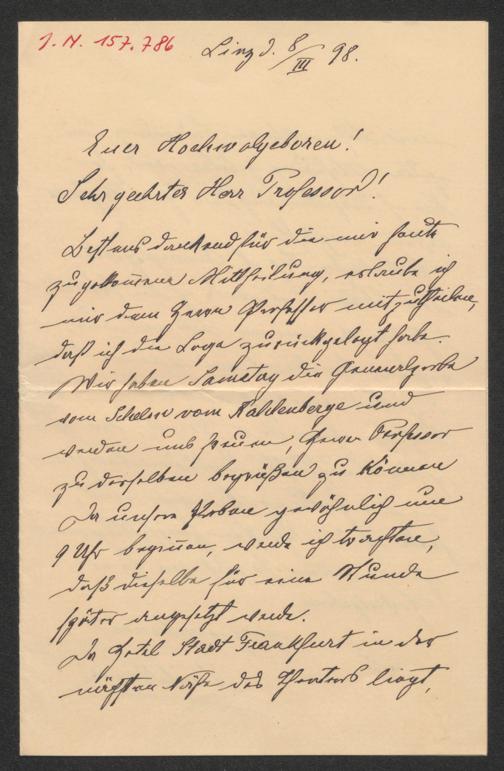 J. N. 157.786
Linz d. 8/III 98.
Euer Hochwolgeboren!
Sehr geehrter Herr Professor!
Bestens dankend für die mir heute
zugekommene Mittheilung, erlaube ich
mir dem Herrn Professor mitzutheilen,
daß ich die Loge zurückgelegt habe.
Wir haben Samstag die Generalprobe
vom Schelm vom Kahlenberge und
werden uns freuen, Herrn Professor
zu derselben begrüßen zu können
Da unsere Proben gewöhnlich um
9 Uhr beginnen, werde ich trachten,
daß dieselbe für eine Stunde
später angesetzt werde.
Da Hotel Stadt Frankfurt in der
nächsten Nähe des Theaters liegt,